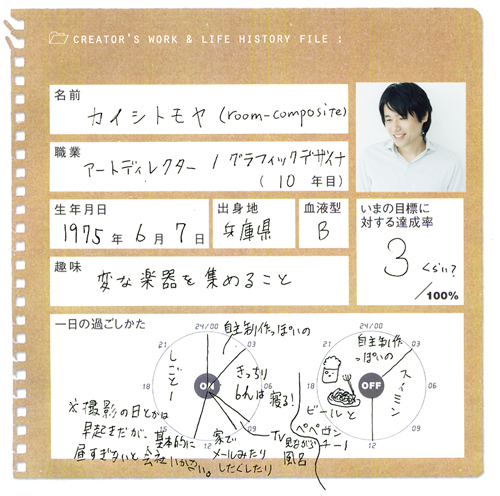 CREATOR'S WORK & LIFE HISTORY FILE :
名前
カイシトモヤ (room-composite)
職業
アートディレクター / グラフィックデザイナ
(10年目)
生年月日
1975年6月7日
出身地
兵庫県
血液型
B
いまの目標に
対する達成率
3くらい?
/100%
趣味
変な楽器を集めること
一日の過ごしかた
24/00
21
03
18
06
15
09
12
ON
しごとー
自主制作っぽいの
きっちり
6hは
寝る!
TV見ながら
風呂
家で
メールみたり
したくしたり
※撮影の日とかは
早起きだが、基本的に
昼すぎないと会社
24/00
21
03
18
06
15
09
12
OFF
自主制作っ
ぽいの
スイミン
ビールと
ペペロン
チーノ